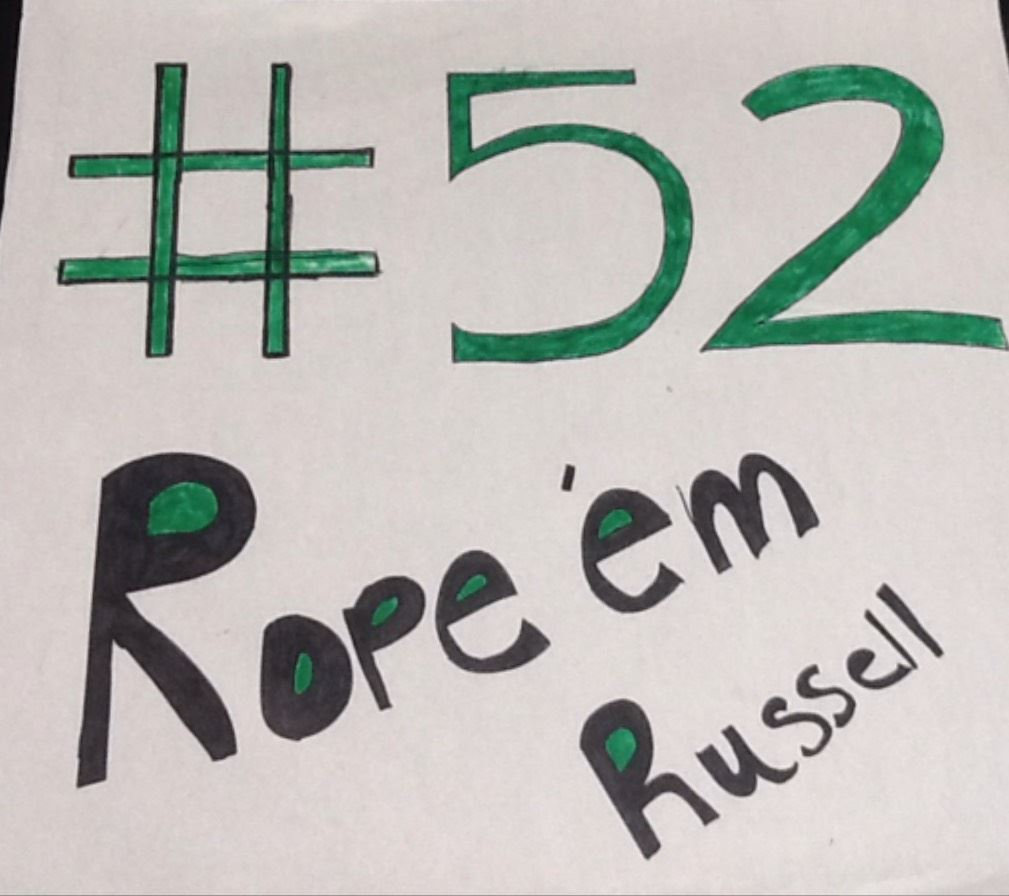 #52
Rope 'em
Russell